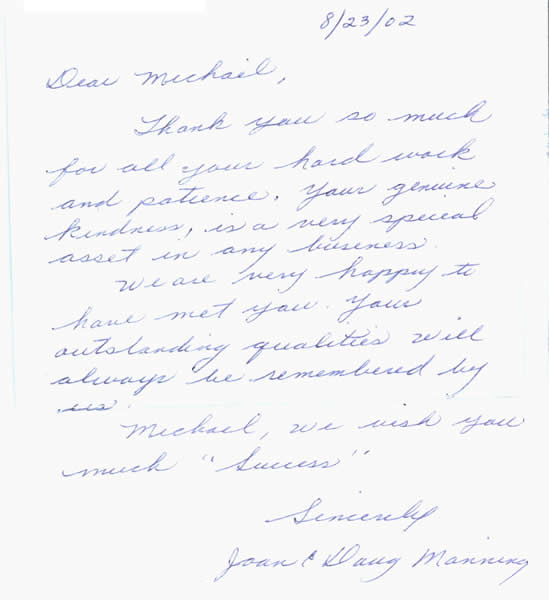 8/23/02
Dear Michael,
Thank you so much
for all your hard work
and patience. Your genuine
kindness, is a very special
asset in any business.
We are very happy to
have met you. Your
outstanding qualities will
always be remembered by
us.
Michael, we wish you
much "Success"
Sincerely
Joan & Doug Manning